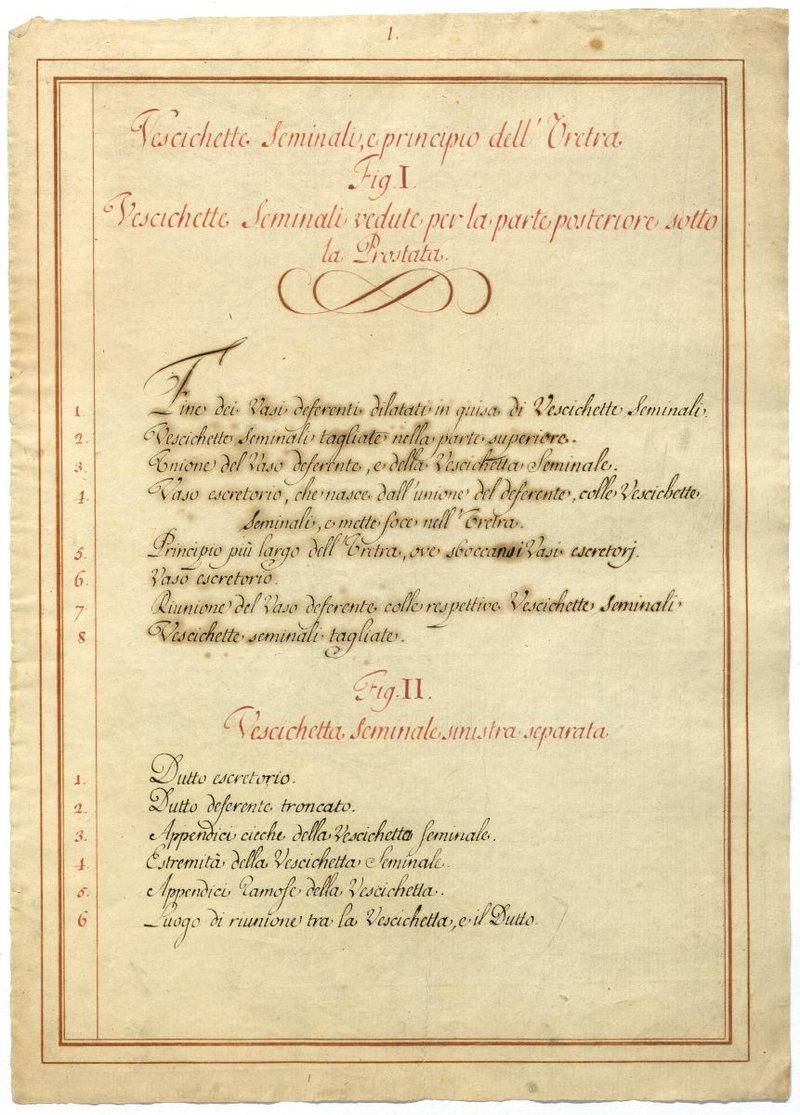 1.
Vescichette Seminali, e principio dell' Uretra
Fig. I.
Vescichette Seminali vedute per la parte posteriore sotto
la Prostata.
1. Fine dei Vasi deferenti dilatati in guisa di Vescichette Seminali.
2. Vescichette seminali tagliate nella parte superiore.
3. Unione del Vaso deferente, e della Vescichetta Seminale.
4. Vaso escretorio, che nasce dall'unione del deferente, colle Vescichette
Seminali, e mette foce nell'Uretra.
5. Principio più largo dell'Uretra, ove sboccano i Vasi escretorj.
6. Vaso escretorio.
7 Riunione del Vaso deferente colle respettive Vescichette Seminali
8 Vescichette seminali tagliate.
Fig. II.
Vescichetta Seminale sinistra separata
1. Dutto escretorio.
2. Dutto deferente troncato.
3. Appendici cieche della Vescichetta seminale.
4. Estremità della Vescichetta Seminale.
5. Appendici Ramose della Vescichetta.
6 Luogo di riunione tra la Vescichetta, e il Dutto.